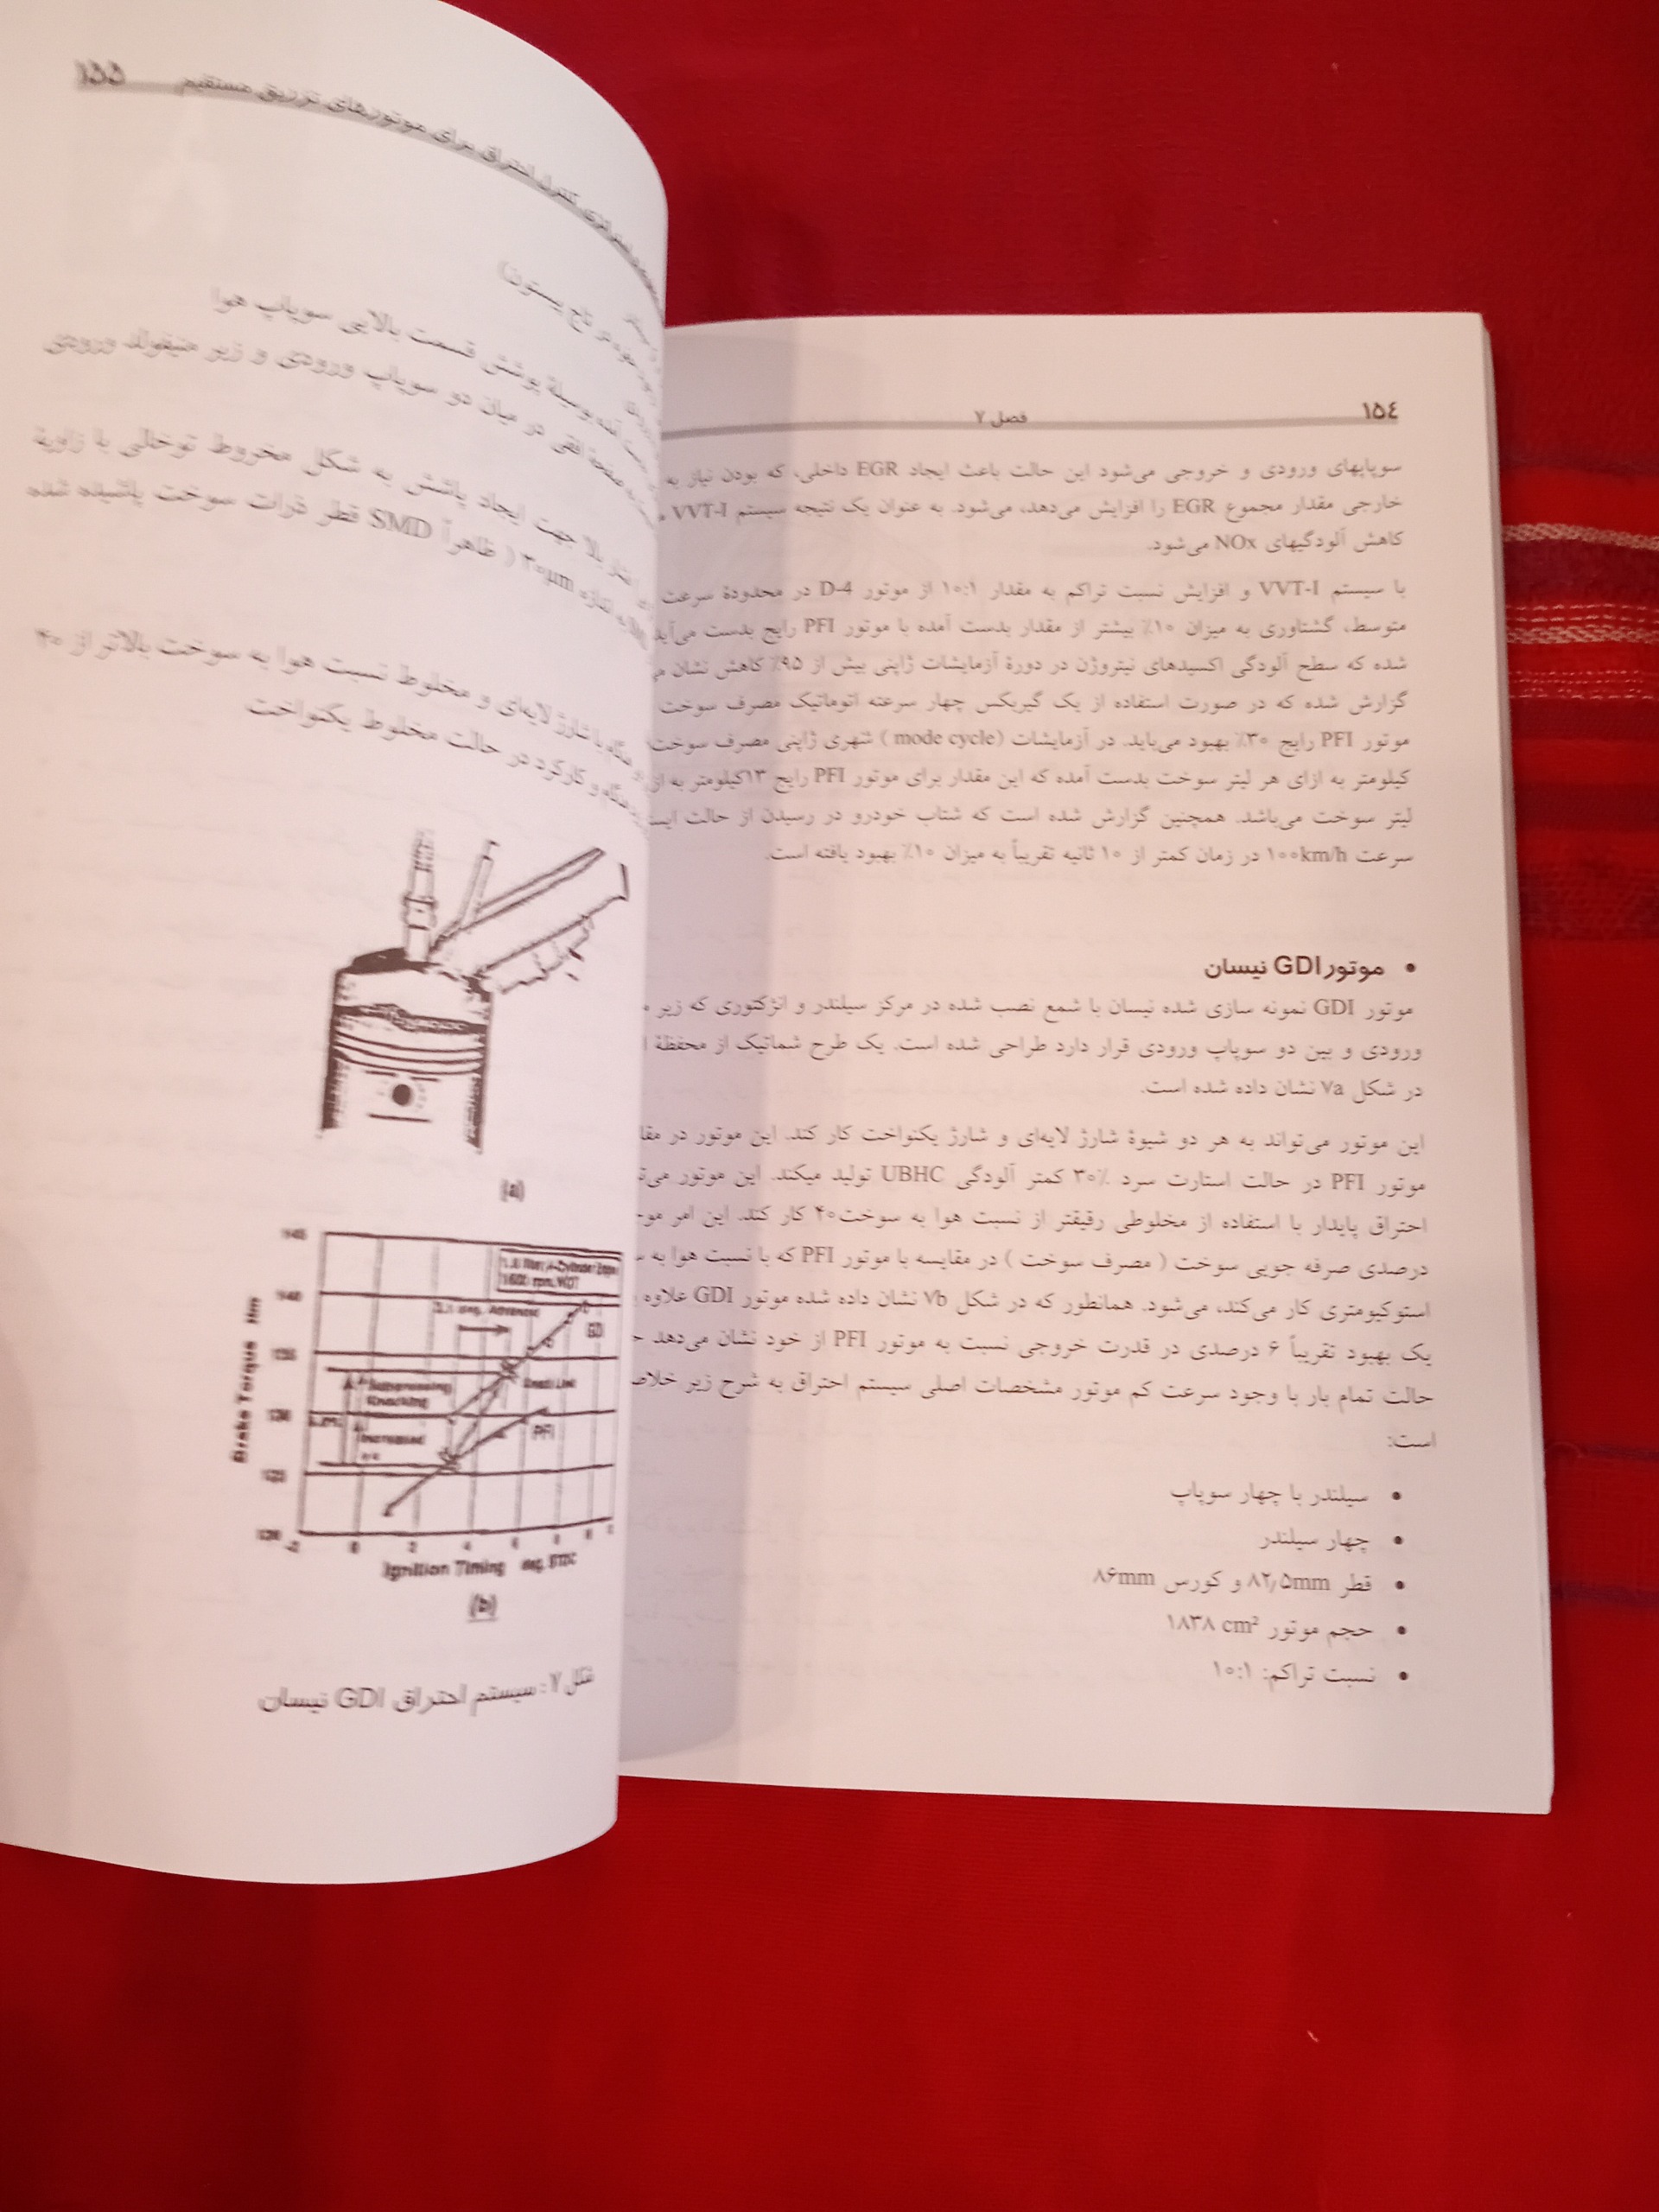 ١٥٤
فصل ۷
سوپاپهای ورودی و خروجی می‌شود این حالت باعث ایجاد EGR داخلی، که بودن نیاز به
خارجی مقدار مجموع EGR را افزایش می‌دهد، می‌شود. به عنوان یک نتیجه سیستم VVT-I
کاهش آلودگیهای NOx می‌شود.
با سیستم VVT-I و افزایش نسبت تراکم به مقدار ۱۰:۱ از موتور D-4 در محدودهٔ سرعت
متوسط، گشتاوری به میزان ۱۰٪ بیشتر از مقدار بدست آمده با موتور PFI رایج بدست می‌آید
شده که سطح آلودگی اکسیدهای نیتروژن در دورهٔ آزمایشات ژاپنی بیش از ۹۵٪ کاهش نشان
گزارش شده که در صورت استفاده از یک گیربکس چهار سرعته اتوماتیک مصرف سوخت
موتور PFI رایج ۳۰٪ بهبود می‌یابد. در آزمایشات (mode cycle) شهری ژاپنی مصرف سوخت
کیلومتر به ازای هر لیتر سوخت بدست آمده که این مقدار برای موتور PFI رایج ۱۳کیلومتر به
لیتر سوخت می‌باشد. همچنین گزارش شده است که شتاب خودرو در رسیدن از حالت
سرعت ۱۰۰km/h در زمان کمتر از ۱۰ ثانیه تقریباً به میزان ۱۰٪ بهبود یافته است.
• موتور GDI نیسان
موتور GDI نمونه سازی شده نیسان با شمع نصب شده در مرکز سیلندر و انژکتوری که زیر
ورودی و بین دو سوپاپ ورودی قرار دارد طراحی شده است. یک طرح شماتیک از محفظهٔ
در شکل ۷a نشان داده شده است.
این موتور می‌تواند به هر دو شیوهٔ شارژ لایه‌ای و شارژ یکنواخت کار کند. این موتور در
موتور PFI در حالت استارت سرد ۳۰٪ کمتر آلودگی UBHC تولید میکند. این موتور
احتراق پایدار با استفاده از مخلوطی رقیقتر از نسبت هوا به سوخت۴۰ کار کند. این امر
درصدی صرفه جویی سوخت ( مصرف سوخت ) در مقایسه با موتور PFI که با نسبت هوا به
استوکیومتری کار می‌کند، می‌شود. همانطور که در شکل ۷b نشان داده شده موتور GDI علاوه
یک بهبود تقریباً ۶ درصدی در قدرت خروجی نسبت به موتور PFI از خود نشان می‌دهد
حالت تمام بار با وجود سرعت کم موتور مشخصات اصلی سیستم احتراق به شرح زیر
است:
• سیلندر با چهار سوپاپ
• چهار سیلندر
• قطر ۸۲٫۵mm و کورس ۸۶mm
• حجم موتور ۱۸۳۸ cm²
• نسبت تراکم: ۱۰:۱
کنترل احتراق برای موتورهای تزریق مستقیم ١٥٥
در تاج پیستون)
بوسیلهٔ پوشش قسمت بالایی سوپاپ هوا
صفحهٔ افقی در میان دو سوپاپ ورودی و زیر منیفولد ورودی
بالا جهت ایجاد پاشش به شکل مخروط توخالی با زاویهٔ
۳۰µm ( ظاهراً SMD قطر ذرات سوخت پاشیده شده
با شارژ لایه‌ای و مخلوط نسبت هوا به سوخت بالاتر از ۴۰
و کارکرد در حالت مخلوط یکنواخت
(a)
145
140
135
130
125
120
Brake Torque Nm
1600 rpm, WOT
deg. Advanced
GDI
Suppressing
Knocking
Increased
PFI
-2 0 2 4 6 8
Ignition Timing deg. BTDC
(b)
شکل ۷: سیستم احتراق GDI نیسان